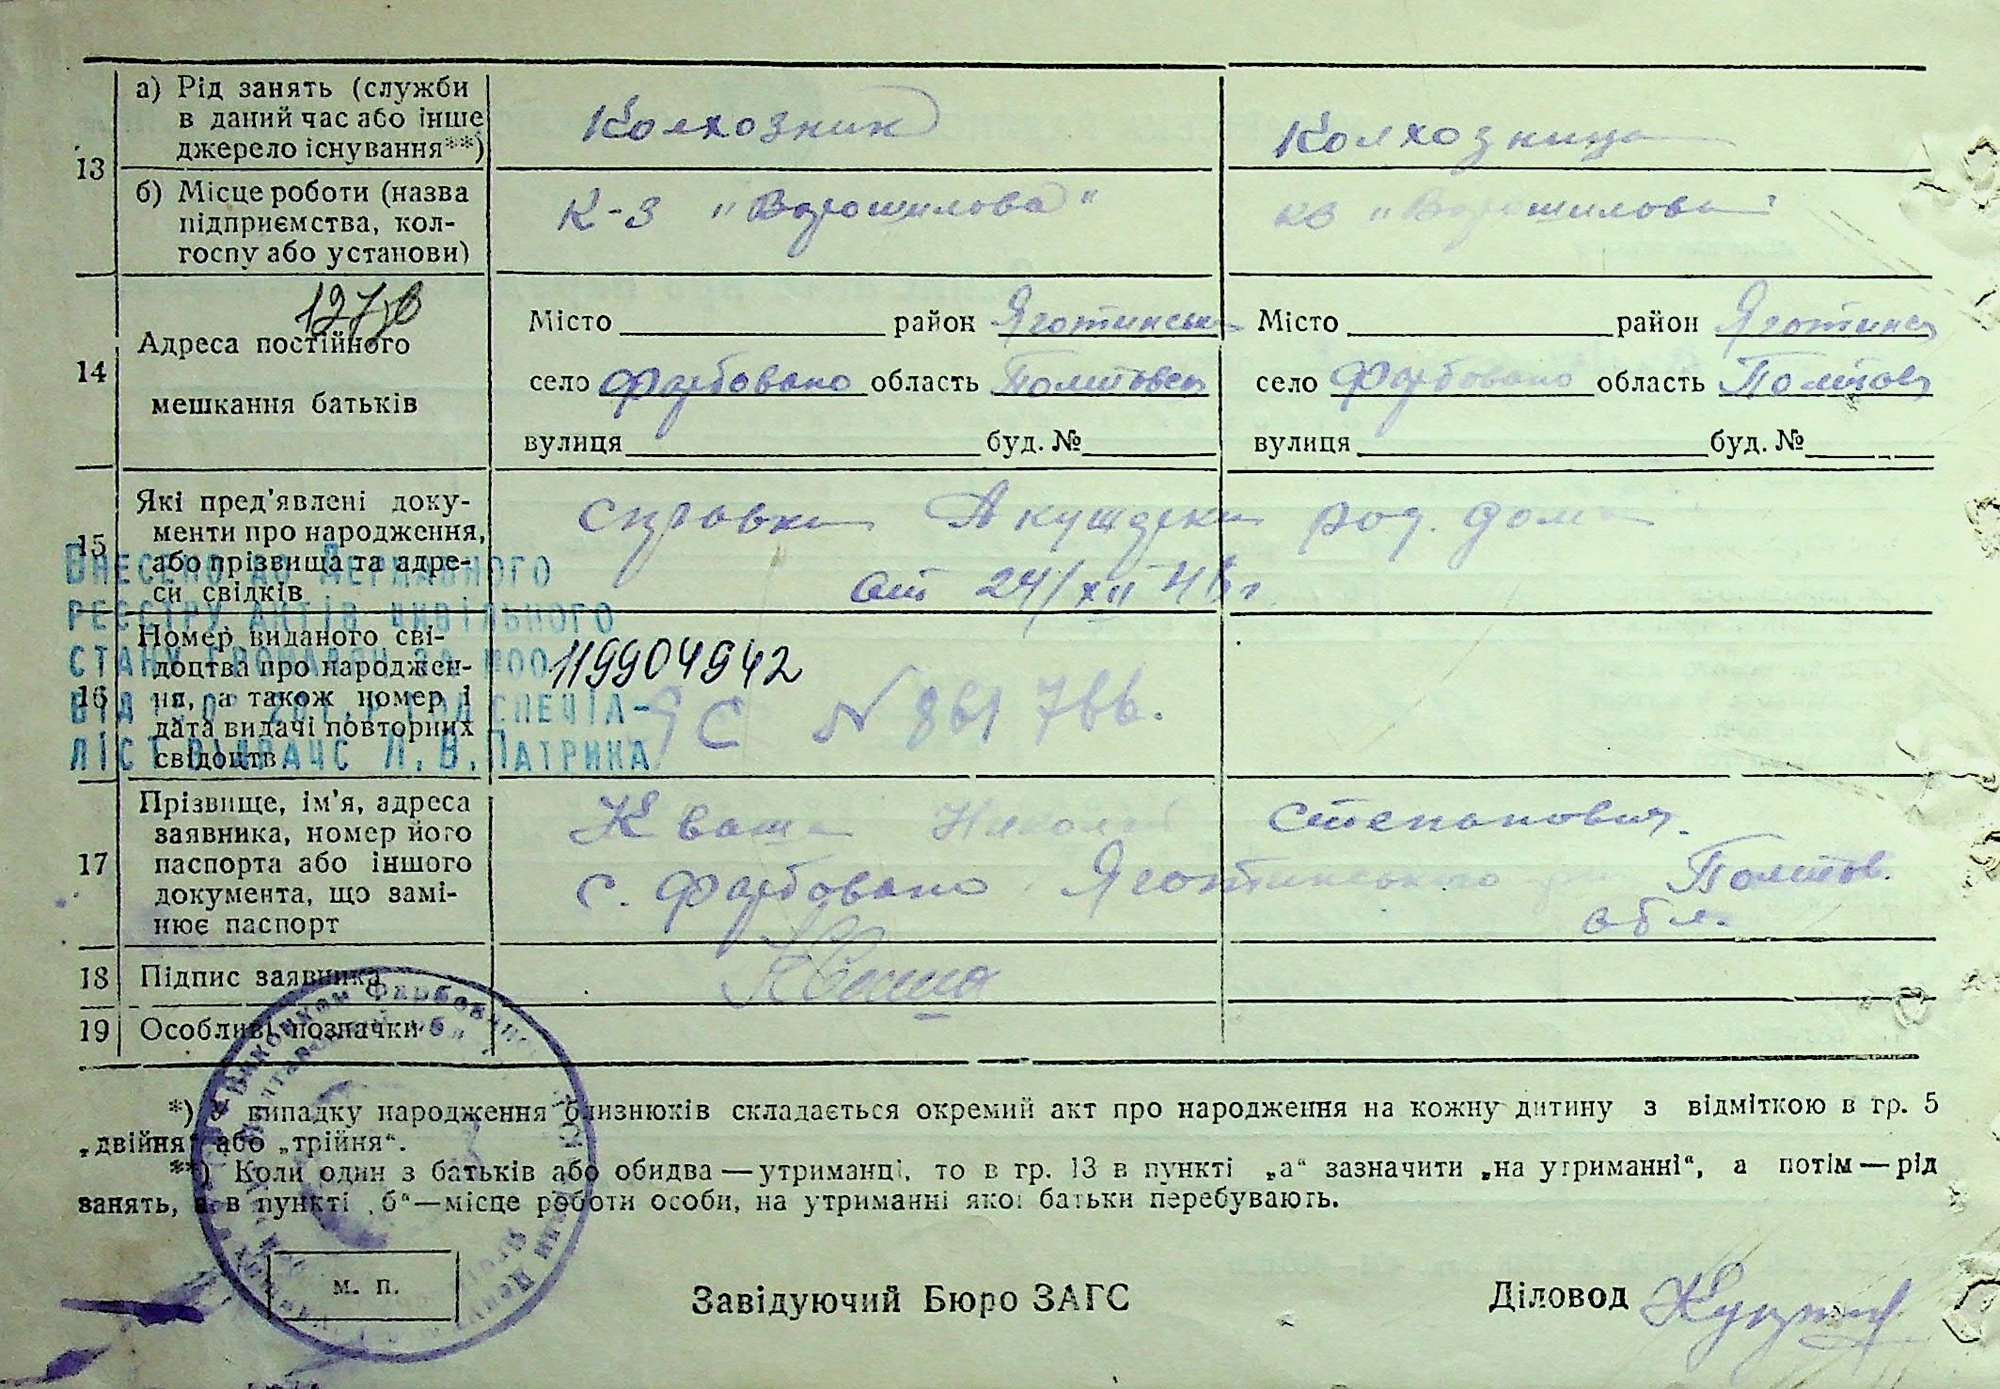 13
а) Рід занять (служби
в даний час або інше
джерело існування**)
Колхозник
Колхозница
б) Місце роботи (назва
підприємства, кол-
госпу або установи)
К-з "Ворошилова"
кз "Ворошилова"
14
Адреса постійного
мешкання батьків
Місто район Яготинськ
село Фарбовано область Полтовск
вулиця буд. №
Місто район Яготинс
село Фарбовано область Полтов
вулиця буд. №
15
Які пред'явлені доку-
менти про народження,
або прізвища та адре-
си свідків
справка Акушерки род. дома
от 24/XII
Внесено до Державного
реєстру актів цивільного
стану громадян за №00
1199904942
від спеціа-
ліст ВДРАЦС Л. В. Патрика
16
Номер виданого сві-
доцтва про народжен-
ня, а також номер і
дата видачі повторних
свідоцтв
ЯС N
17
Прізвище, ім'я, адреса
заявника, номер його
паспорта або іншого
документа, що замі-
нює паспорт
Кваша Николай Степанович.
с. Фарбовано Яготинського Полтов.
обл.
18
Підпис заявника
Кваша
19
Особливі позначки
*) У випадку народження близнюків складається окремий акт про народження на кожну дитину з відміткою в гр. 5
„двійня" або „трійня".
**) Коли один з батьків або обидва — утриманці, то в гр. 13 в пункті „а" зазначити „на утриманні", а потім — рід
занять, а в пункті „б" — місце роботи особи, на утриманні якої батьки перебувають.
м. п.
Завідуючий Бюро ЗАГС
Діловод